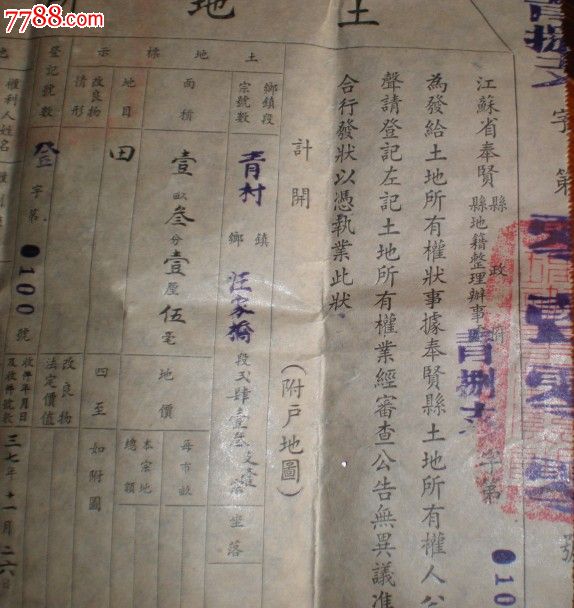 7788.com
土地
字第
號
江蘇省奉賢縣政府
縣地籍整理辦事處
字第
●10
為發給土地所有權狀事據奉賢縣土地所有權人
聲請登記左記土地所有權業經審查公告無異議准
合行發狀以憑執業此狀
計開
(附戶地圖)
土地標示
鄉鎮段宗號數
青村
鎮鄉
汪家橋
段
坐落
面積
壹畝叁分壹厘伍毫
地價
每市畝
本宗地總額
地目
田
四至
如附圖
改良物情形
改良物法定價值
登記號數
登字第●100號
收件年月日及收件號數
三七年十一月二六日
權利人姓名